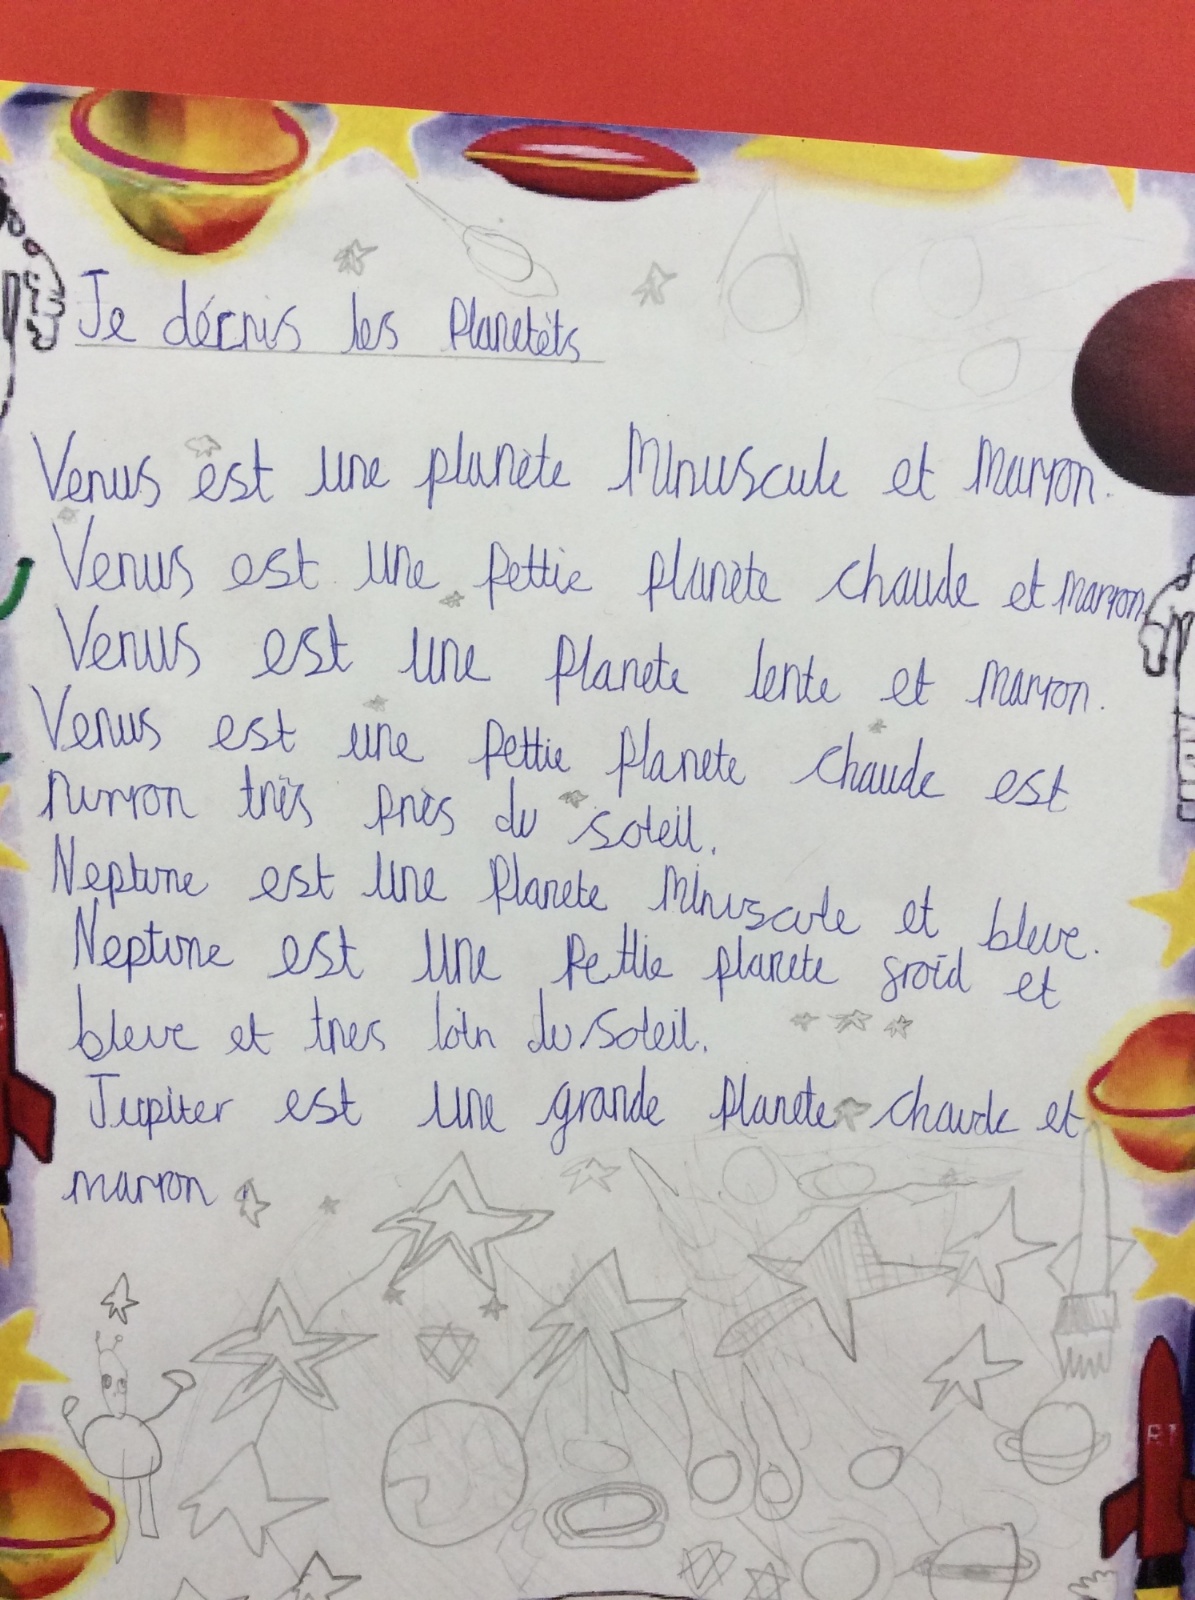 Je décris les Planetèts
Venus est une planète Minuscule et Marron.
Venus est une Pettie Planète chaude et Marron.
Venus est une Planete lente et Marron.
Venus est une Pettie Planete chaude est
Murron très Près du Soleil.
Neptune est une Planete Minuscule et bleue.
Neptune est une Pettie planete froid et
bleue et tres loin du Soleil.
Jupiter est une grande Planete chaude et
marron.